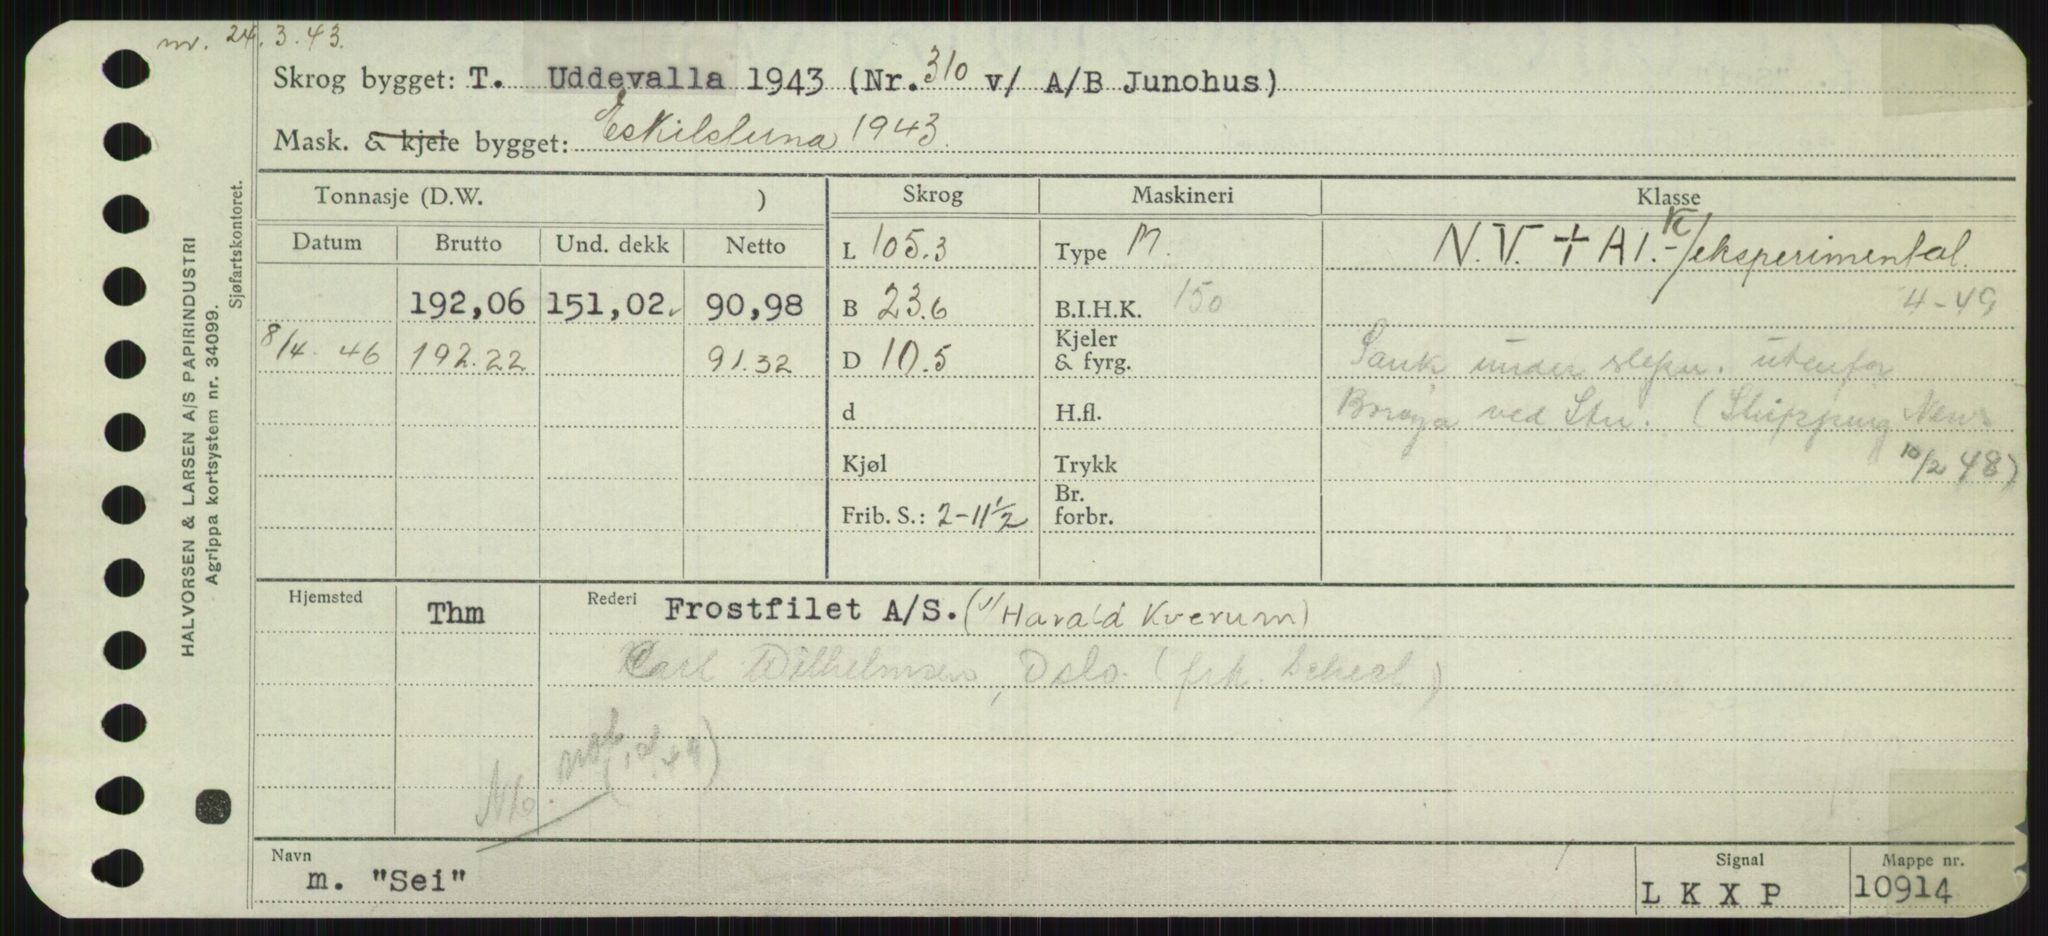 nr. 24.3.43.
Skrog bygget: T. Uddevalla 1943 (Nr. 310 v/ A/B Junohus)
Mask. & kjele bygget: Eskilstuna 1943.
Tonnasje (D.W. ) Skrog Maskineri Klasse
Datum Brutto Und. dekk Netto L 105.3 Type M. N.V. + A1.-K/eksperimental.
192,06 151,02 90,98 B 23.6 B.I.H.K. 150 4-49
8/4. 46 192.22 91.32 D 10.5 Kjeler & fyrg. Sank under slepn. utenfor
d H.fl. Borøya ved Stv. (Shipping News
Kjøl Trykk 10/2 48)
Frib. S.: 2-11½ Br. forbr.
Hjemsted Thm Rederi Frostfilet A/S. (v/ Harald Kverum)
Carl Wilhelmsen, Oslo (frk.
Navn m. "Sei" Signal L K X P Mappe nr. 10914
HALVORSEN & LARSEN A/S PAPIRINDUSTRI
Agrippa kortsystem nr. 34099.
Sjøfartskontoret.